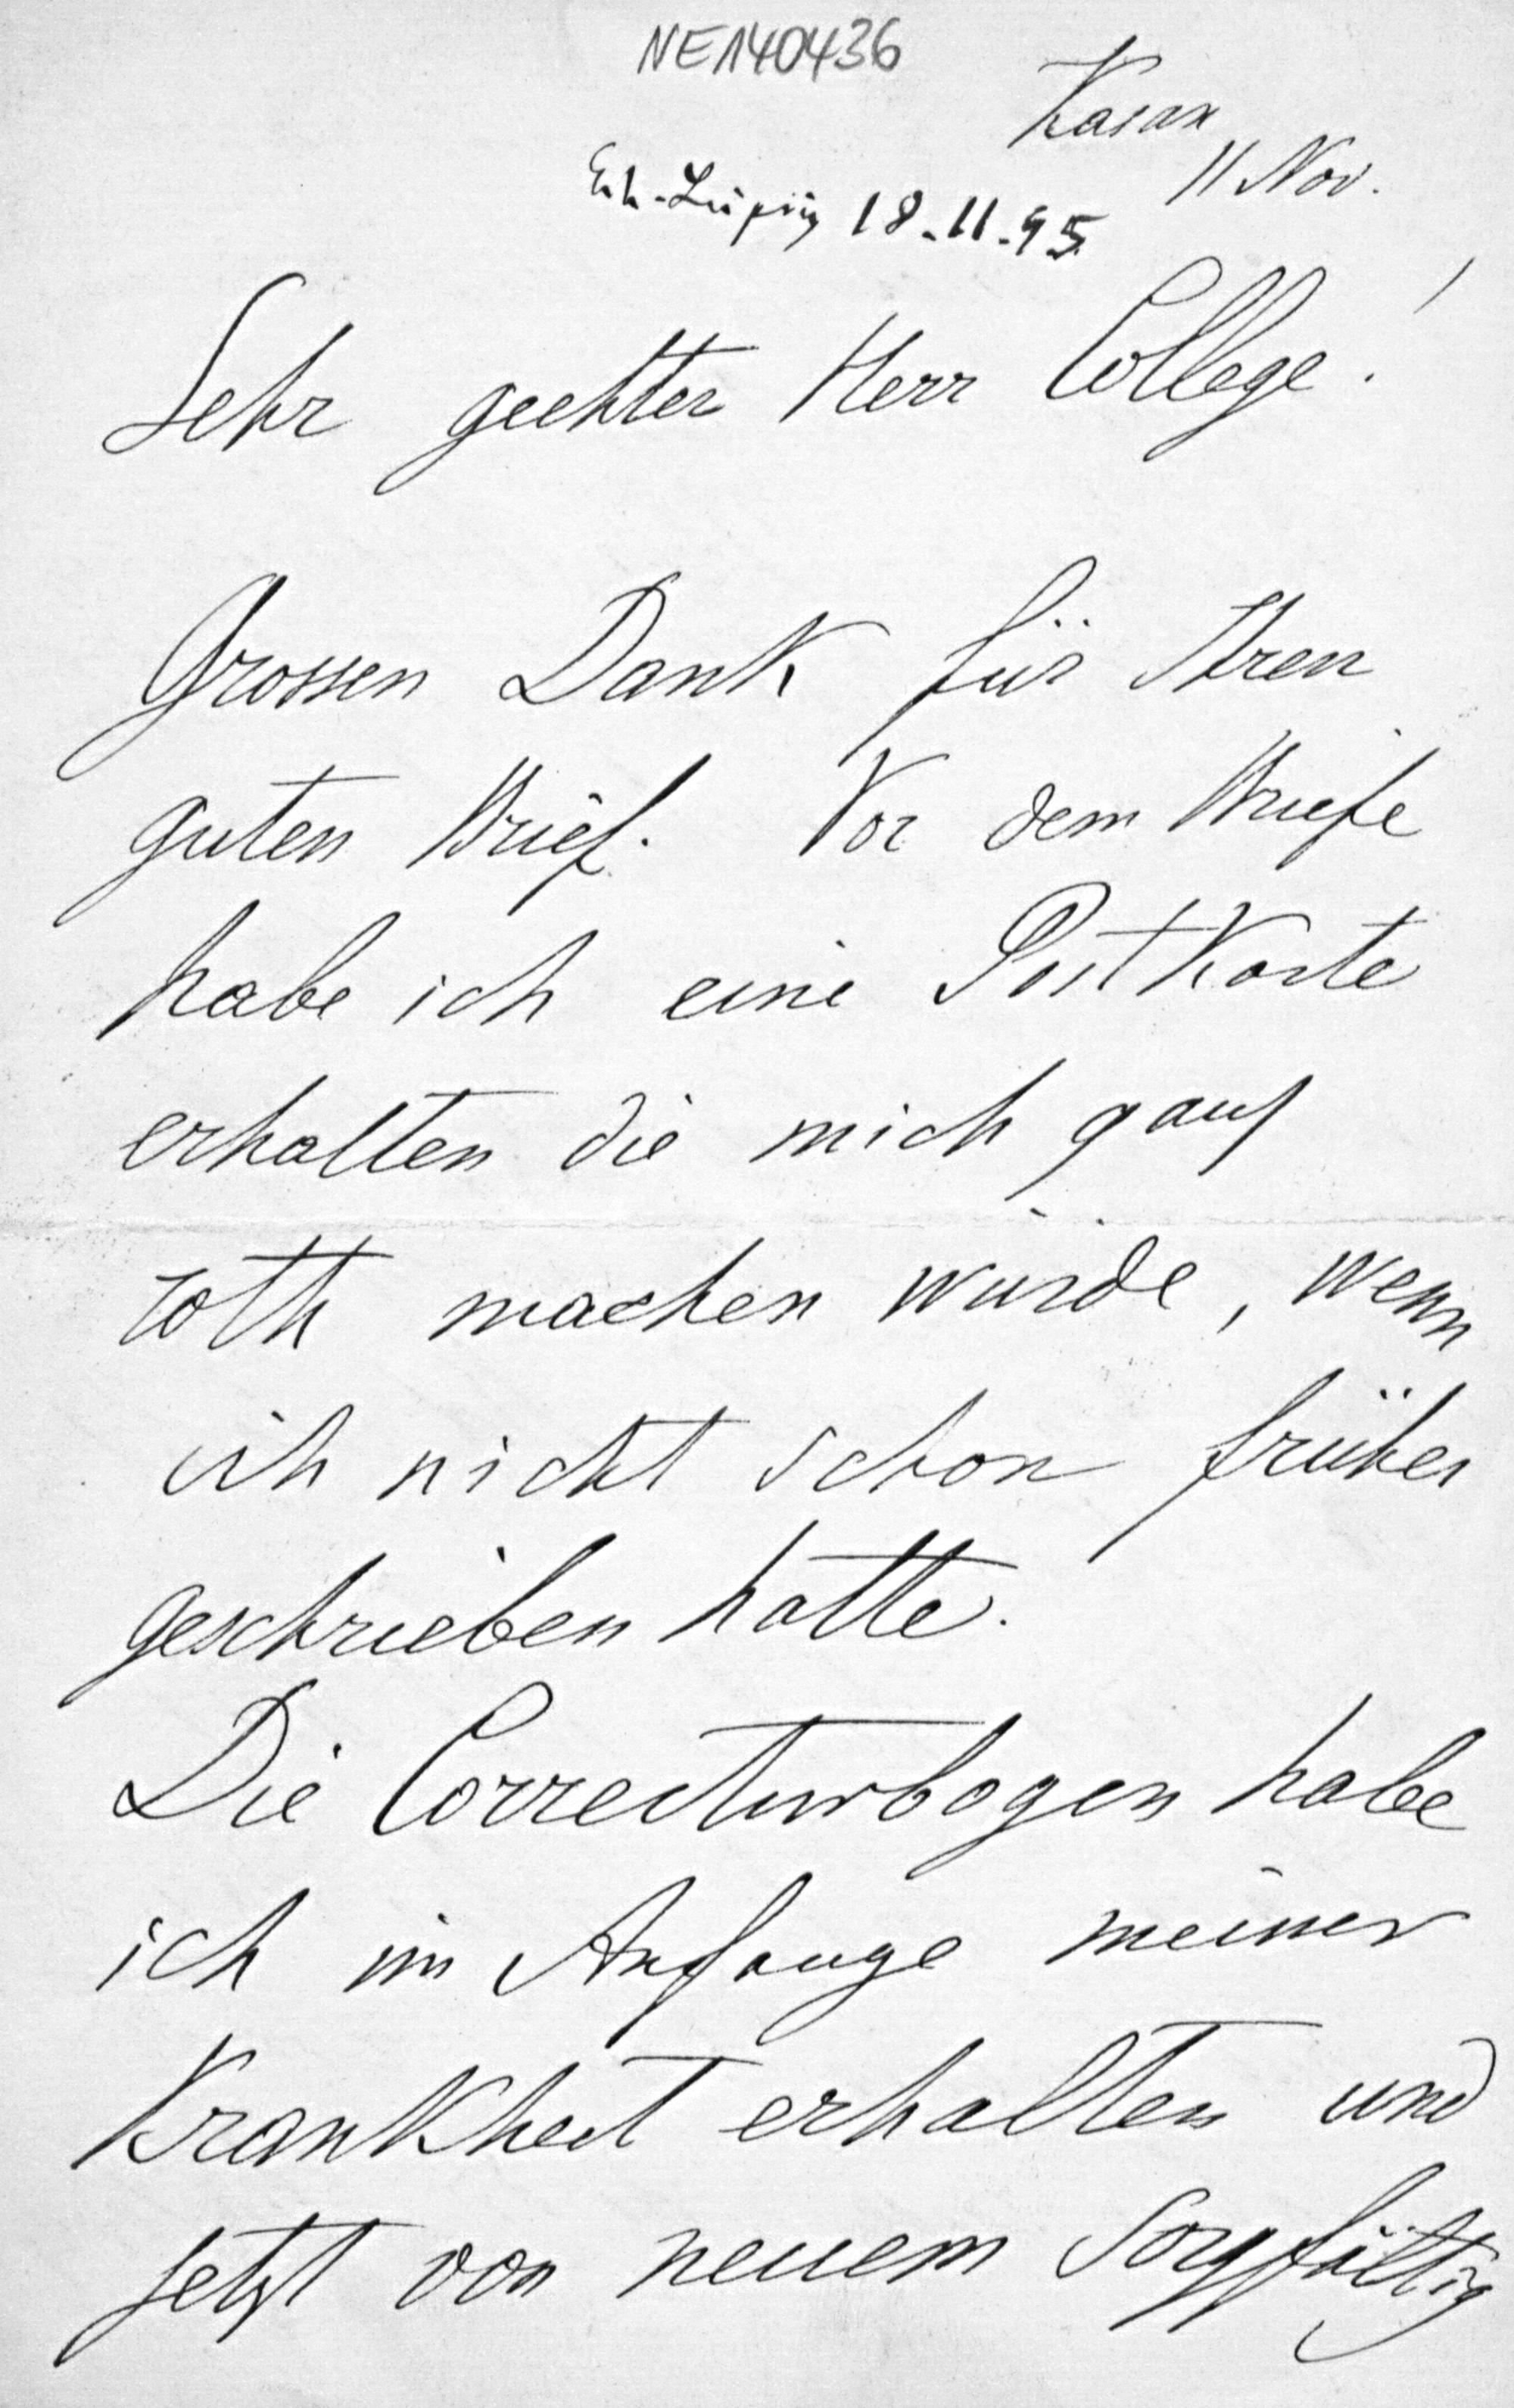 NE140436
Kasan
11 Nov.
Erh. Leipzig 18.11.95
Sehr geehter Herr College!
Grossen Dank für Ihren
guten Brief. Vor dem Briefe
habe ich eine PostKarte
erhalten die mich ganz
roth machen würde, wenn
ich nicht schon früher
geschrieben hatte.
Die Correcturbogen habe
ich im Anfange meiner
Krankheit erhalten und
jetzt von neuem sorgfältig